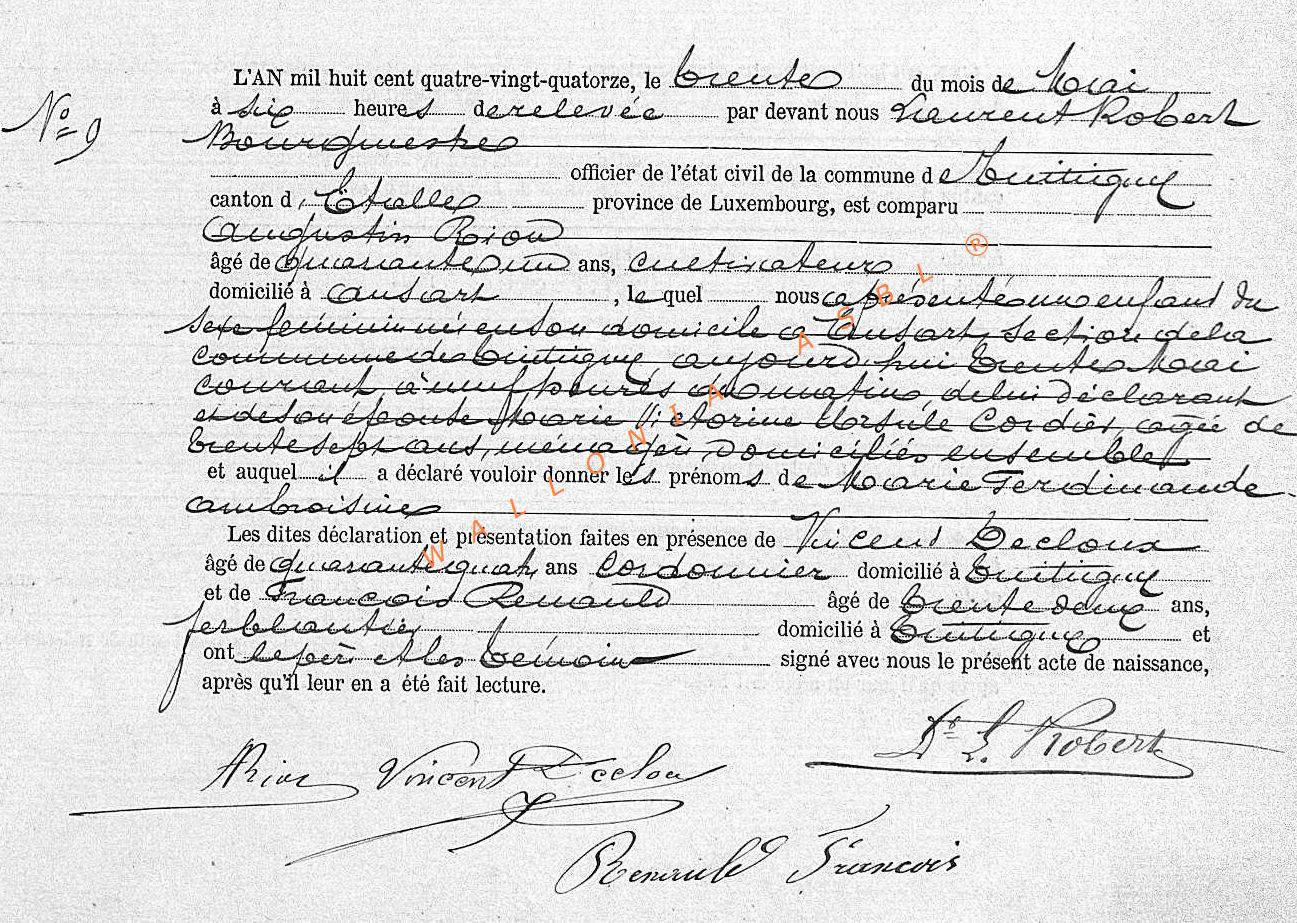 L'AN mil huit cent quatre-vingt-quatorze, le trente du mois de Mai
N° 9
à six heures de relevée par devant nous Laurent Robert
Bourgmestre
officier de l'état civil de la commune de Tintigny
canton d'Etalle province de Luxembourg, est comparu
Augustin Riou
âgé de quarante un ans, cultivateur
domicilié à ansart, le quel nous a présenté un enfant du
sexe féminin né en son domicile à Ansart, section de la
commune de Tintigny, aujourd'hui trente Mai
courant à neuf heures du matin, de lui déclarant
et de son épouse Marie Victorine Ursule Cordier, agée de
trente sept ans, ménagère, domiciliés ensemble
et auquel il a déclaré vouloir donner les prénoms de Marie Ferdinande
ambroisine
Les dites déclaration et présentation faites en présence de Vincent Decloux
âgé de quarante quatre ans Cordonnier domicilié à Tintigny
et de François Renauld âgé de trente deux ans,
ferblantier domicilié à Tintigny et
ont le père et les témoins signé avec nous le présent acte de naissance,
après qu'il leur en a été fait lecture.
Dr L. Robert
ARiou Vincent Decloux
Renauld François
WALLONIA ASBL ®